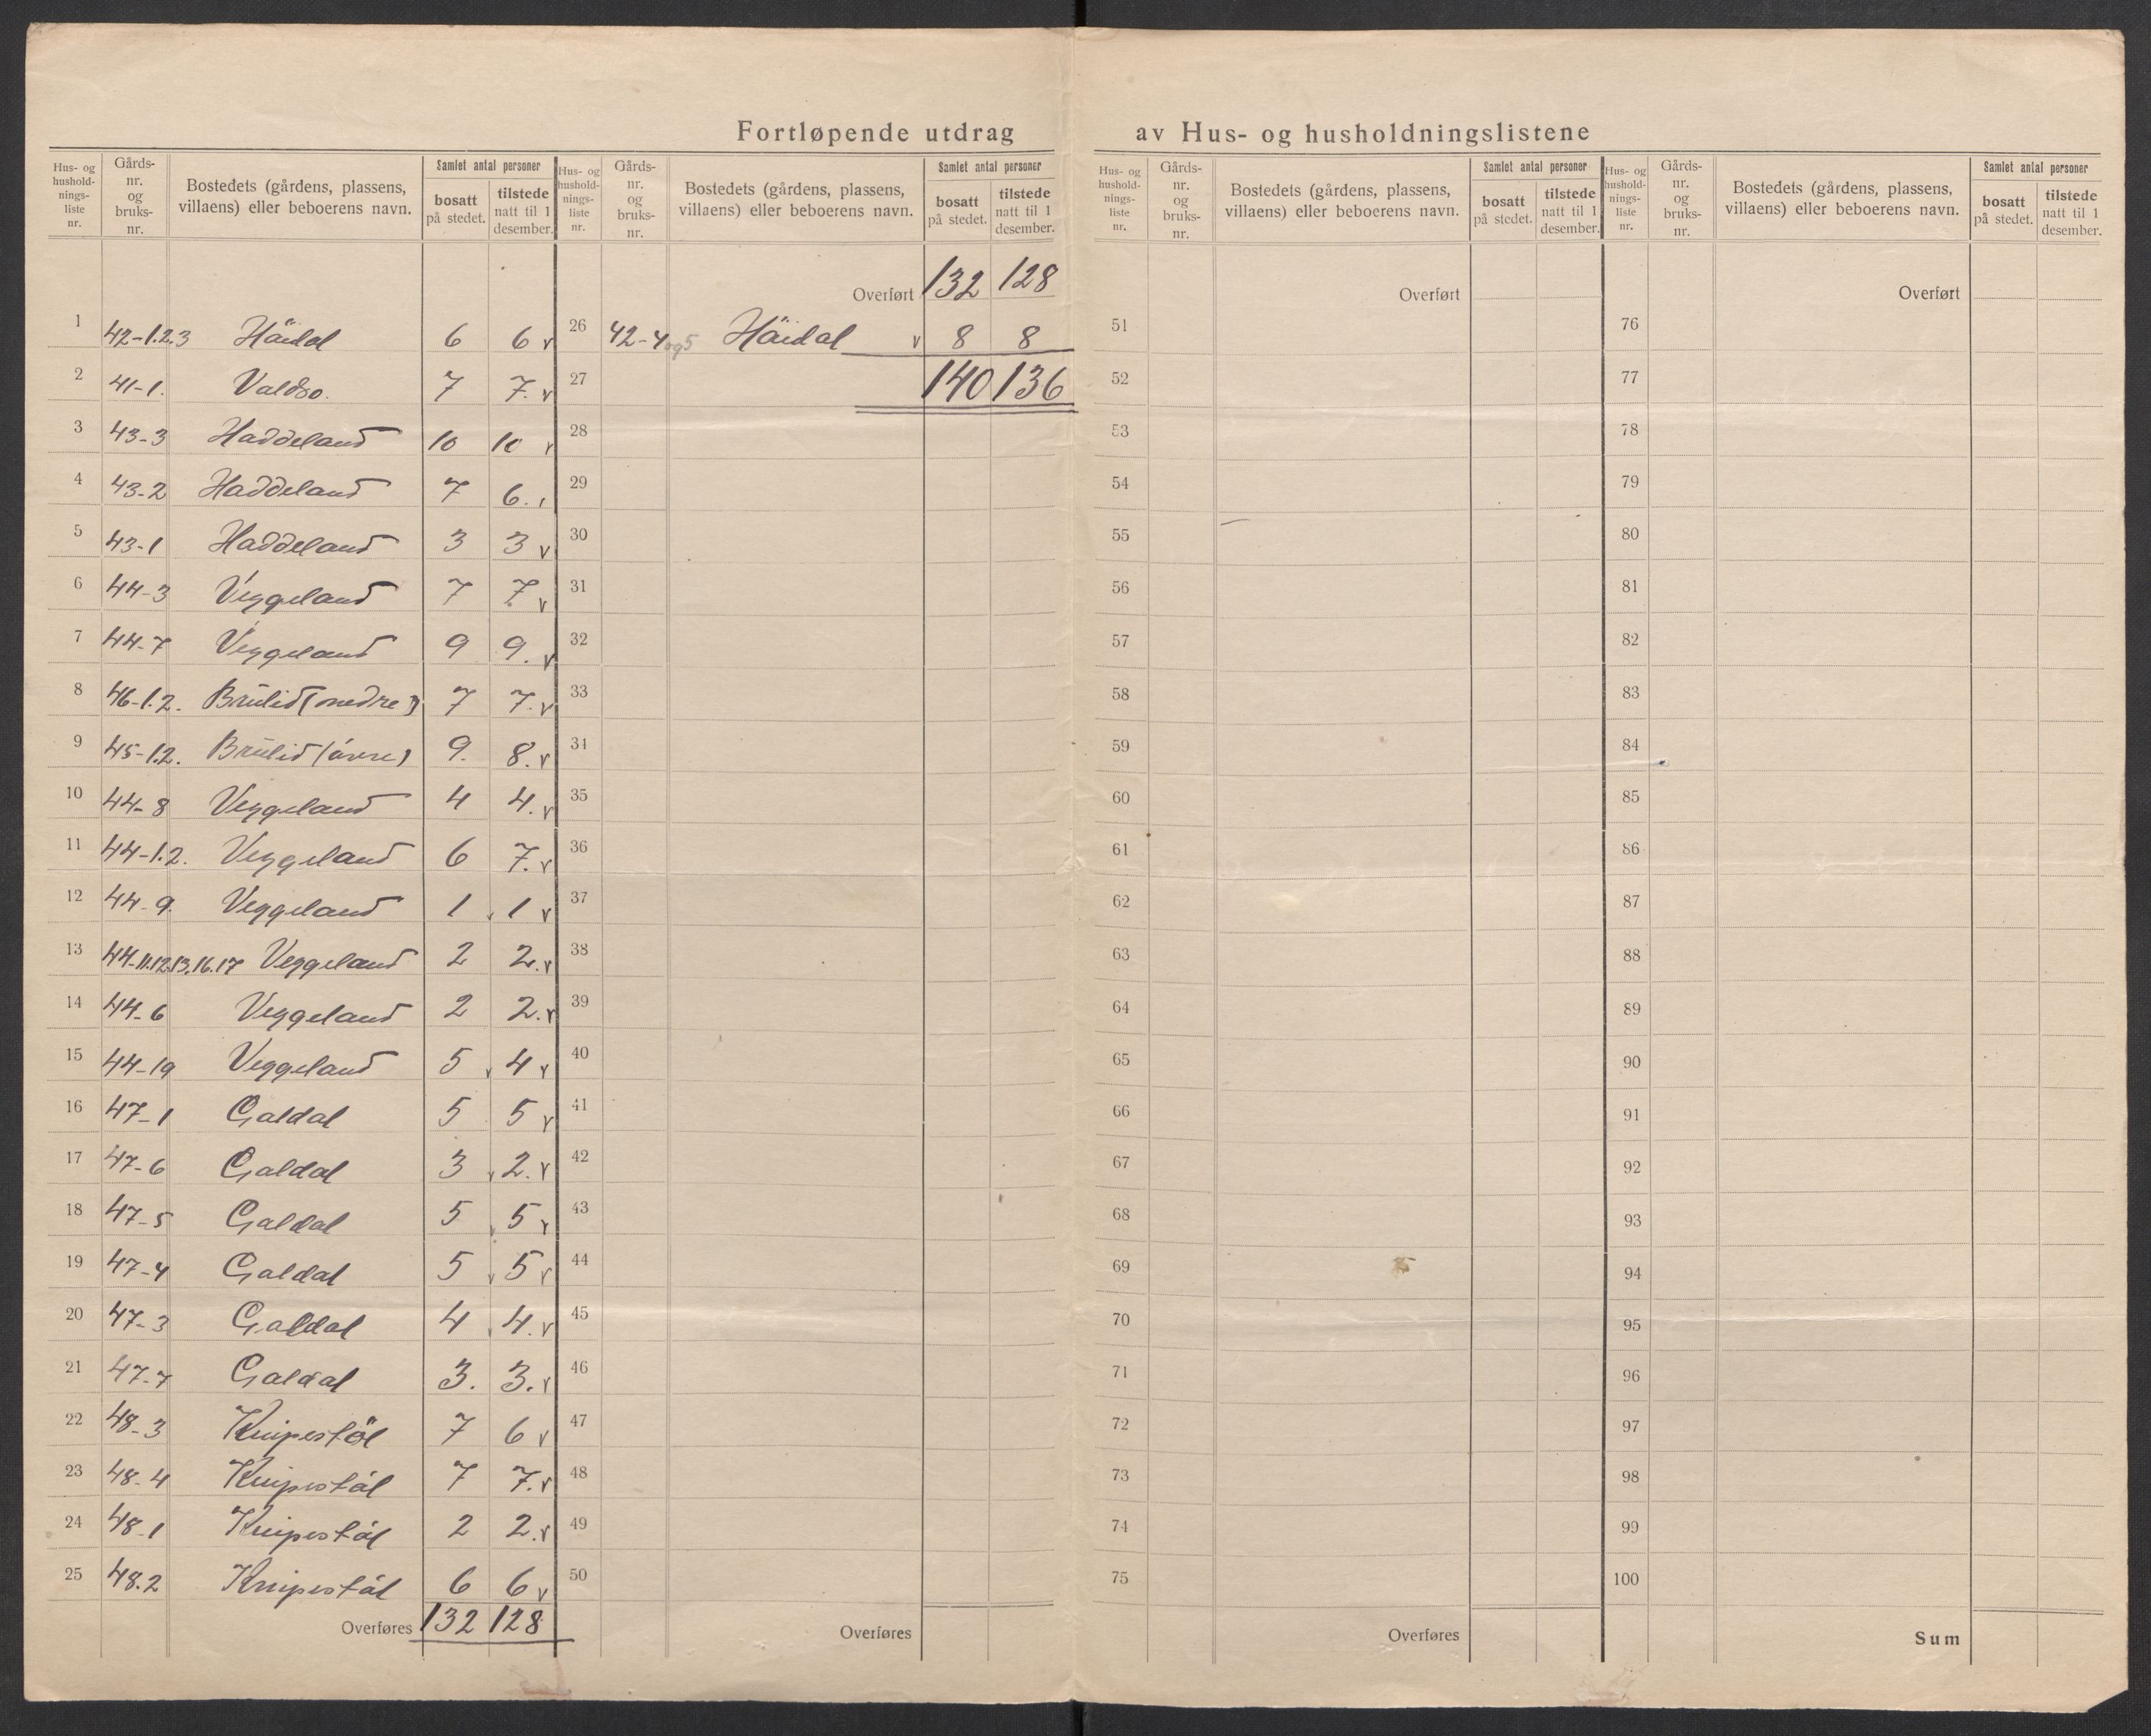 Fortløpende utdrag av Hus- og husholdningslistene
Hus- og husholdnings-liste nr. Gårds-nr. og bruks-nr. Bostedets (gårdens, plassens, villaens) eller beboerens navn. Samlet antal personer bosatt på stedet. tilstede natt til 1 desember.
1 42-1.2.3 Häidal 6 6 v
2 41-1. Valdso. 7 7. v
3 43-3 Haddeland 10 10 v
4 43-2 Haddeland 7 6.
5 43-1 Haddeland 3 3 v
6 44-3 Veggeland 7 7. v
7 44-7 Veggeland 9 9. v
8 46-1.2. Brulid (nedre) 7 7. v
9 45-1.2. Brulid (övre) 9. 8. v
10 44-8 Veggeland 4 4. v
11 44-1.2. Veggeland 6 7. v
12 44-9. Veggeland 1 1 v
13 44-11.12.13.16.17 Veggeland 2 2. v
14 44-6 Veggeland 2 2. v
15 44-19 Veggeland 5 4 v
16 47-1 Galdal 5 5 v
17 47-6 Galdal 3 2. v
18 47-5 Galdal 5 5 v
19 47-4 Galdal 5 5 v
20 47-3 Galdal 4 4. v
21 47-7 Galdal 3. 3. v
22 48-3 Knipestöl 7 6 v
23 48-4 Knipestöl 7 7. v
24 48-1 Knipestöl 2 2. v
25 48.2 Knipestöl 6 6 v
Overføres 132 128
Hus- og husholdnings-liste nr. Gårds-nr. og bruks-nr. Bostedets (gårdens, plassens, villaens) eller beboerens navn. Samlet antal personer bosatt på stedet. tilstede natt til 1 desember.
Overført 132 128
26 42-4 og 5 Häidal v 8 8
27 140 136
28
29
30
31
32
33
34
35
36
37
38
39
40
41
42
43
44
45
46
47
48
49
50
Overføres
Hus- og husholdnings-liste nr. Gårds-nr. og bruks-nr. Bostedets (gårdens, plassens, villaens) eller beboerens navn. Samlet antal personer bosatt på stedet. tilstede natt til 1 desember.
Overført
51
52
53
54
55
56
57
58
59
60
61
62
63
64
65
66
67
68
69
70
71
72
73
74
75
Overføres
Hus- og husholdnings-liste nr. Gårds-nr. og bruks-nr. Bostedets (gårdens, plassens, villaens) eller beboerens navn. Samlet antal personer bosatt på stedet. tilstede natt til 1 desember.
Overført
76
77
78
79
80
81
82
83
84
85
86
87
88
89
90
91
92
93
94
95
96
97
98
99
100
Sum